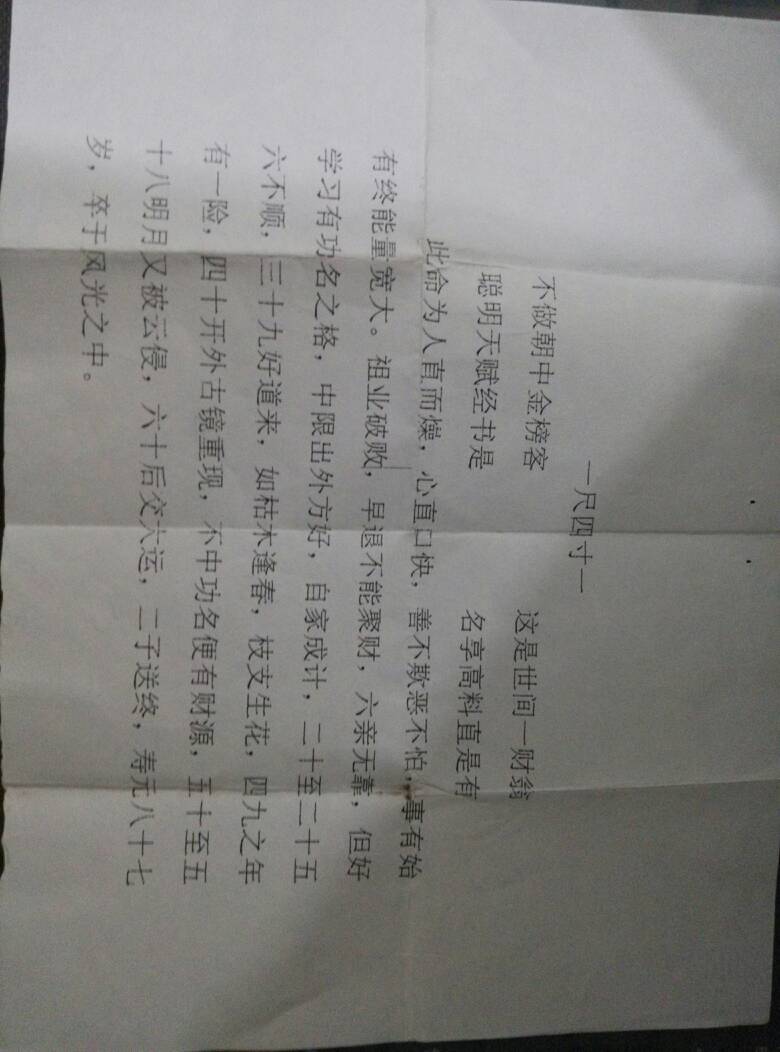 一尺四寸一
不做朝中金榜客 这是世间一财翁
聪明天赋经书是 名享高料直是有
此命为人直而燥，心直口快，善不欺恶不怕，事有始
有终能量宽大。祖业破败，早退不能聚财，六亲无靠，但好
学习有功名之格，中限出外方好，自家成计，二十至二十五
六不顺，三十九好道来，如枯木逢春，枝支生花，四九之年
有一险，四十开外古镜重现，不中功名便有财源，五十至五
十八明月又被云侵，六十后交大运，二子送终，寿元八十七
岁，卒于风光之中。